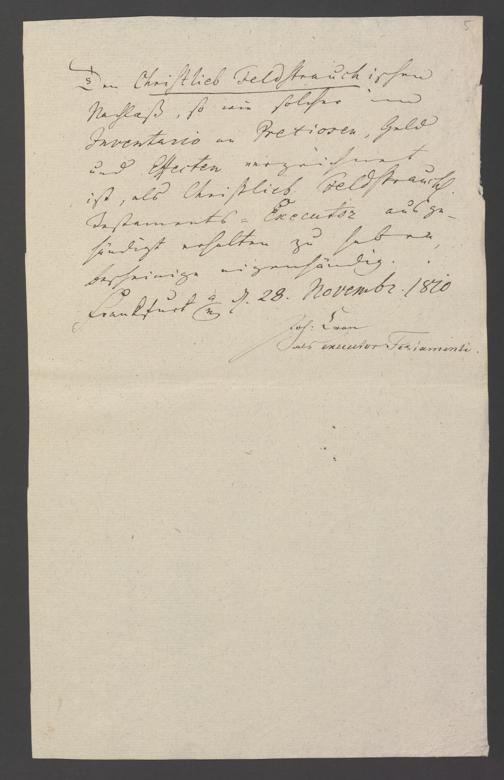 5
Den Christlieb Feldstrauchischen
Nachlaß, so wie solcher im
Inventario an Pretiosen, Geld
und Effecten verzeichnet
ist, als Christlieb Feldstrauch.
Testaments-Executor ausge-
händigt erhalten zu haben,
bescheinige eigenhändig.
Frankfurt a/m d. 28. Novembr. 1810
Joh:
als executor Testamenti.